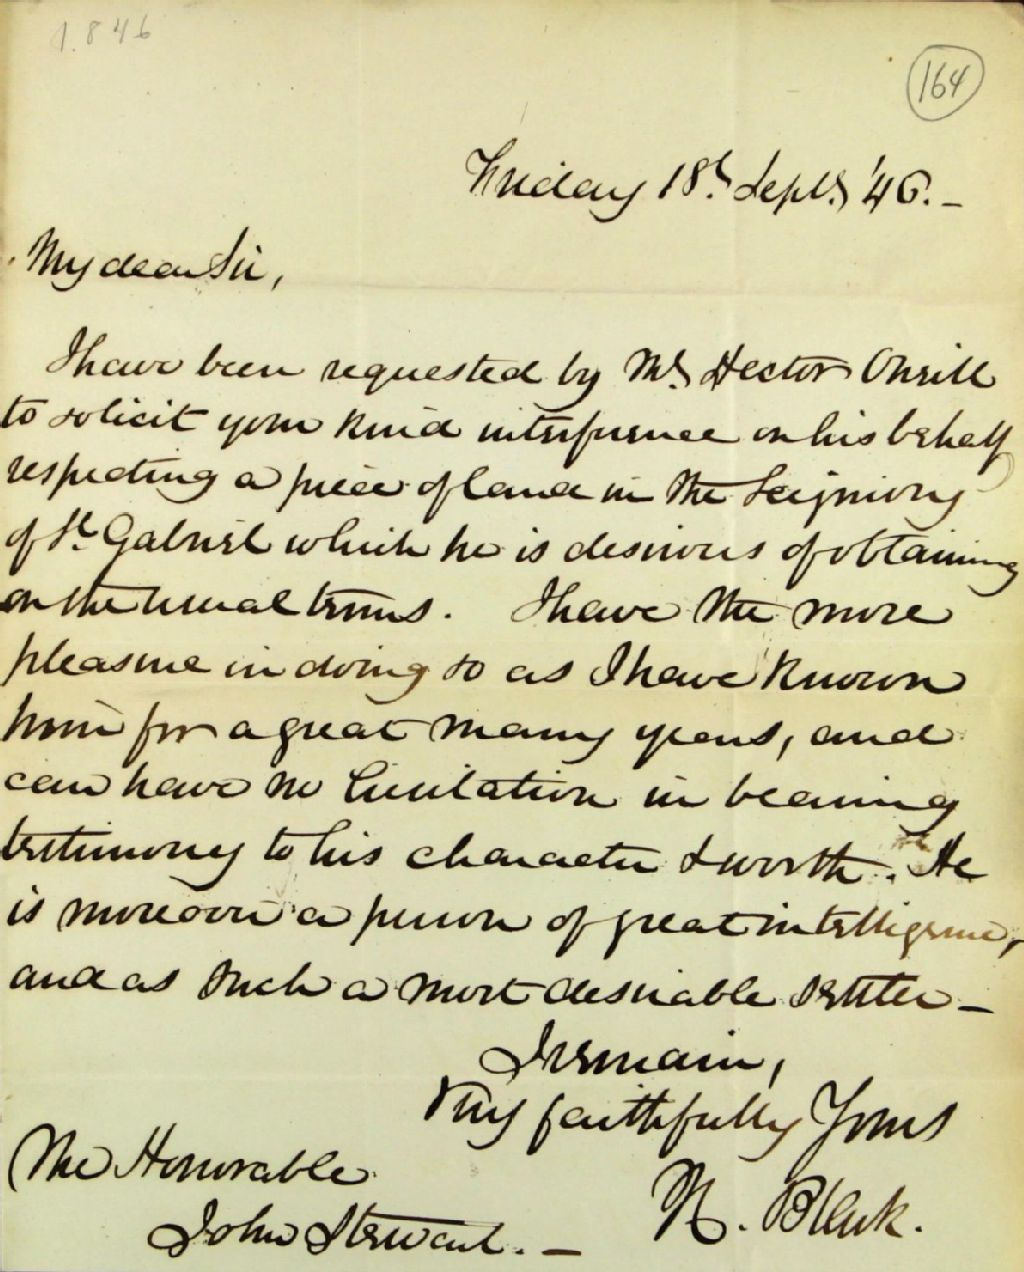 1.846
164
Friday 18th Septr. '46. -
My dear Sir,
I have been requested by Mr. Hector Oneill
to solicit your kind interference on his behalf
respecting a piece of land in the Seigniory
of St. Gabriel which he is desirous of obtaining
on the usual terms. I have the more
pleasure in doing so as I have known
him for a great many years, and
can have no hesitation in bearing
testimony to his character & worth. He
is moreover a person of great intelligence,
and as such a most desirable settler -
I remain,
Very faithfully Yours
The Honorable
John Stewart. -